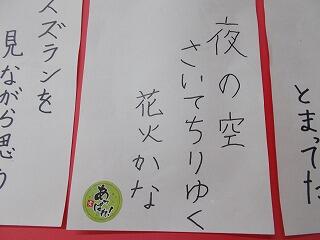 とまってた
夜の空
さいてちりゆく
花火かな
あっぱれ!
スズランを
見ながら思う